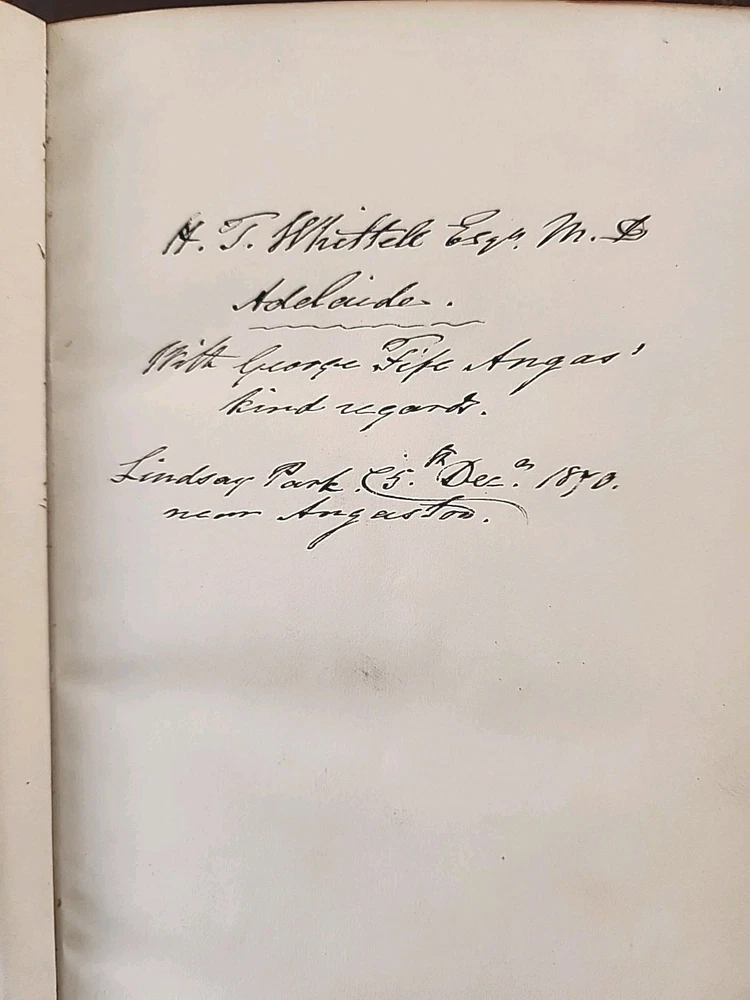 H. T. Whittell Esqre. M. D
Adelaide.
With George Fife Angas'
kind regards.
Lindsay Park 5th Decr. 1870.
near Angaston.